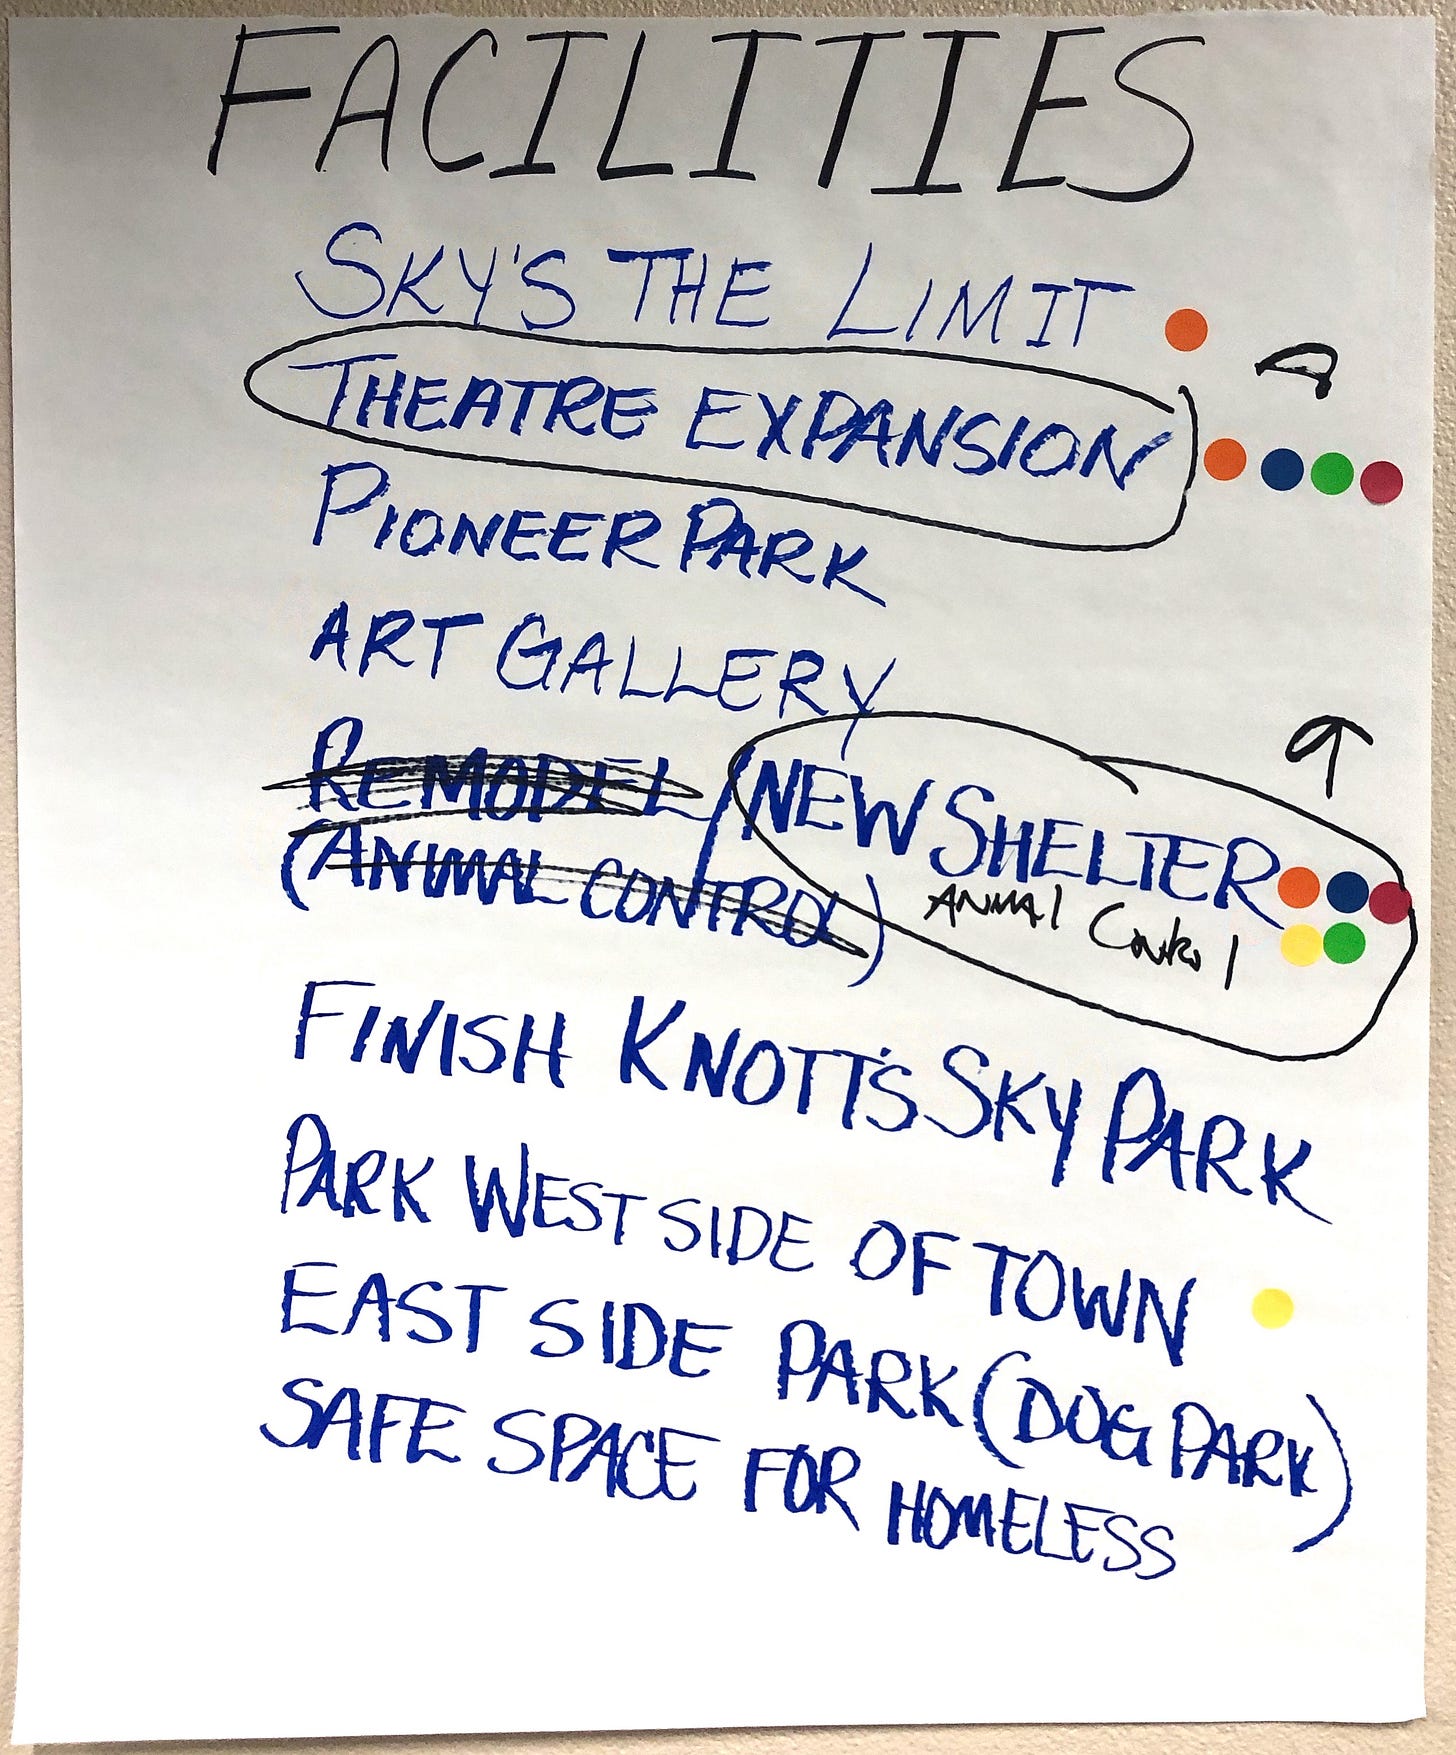 FACILITIES
SKY'S THE LIMIT
THEATRE EXPANSION
PIONEER PARK
ART GALLERY
REMODEL / NEW SHELTER
(ANIMAL CONTROL) ANIMAL CONTROL
FINISH KNOTT'S SKY PARK
PARK WEST SIDE OF TOWN
EAST SIDE PARK (DOG PARK)
SAFE SPACE FOR HOMELESS